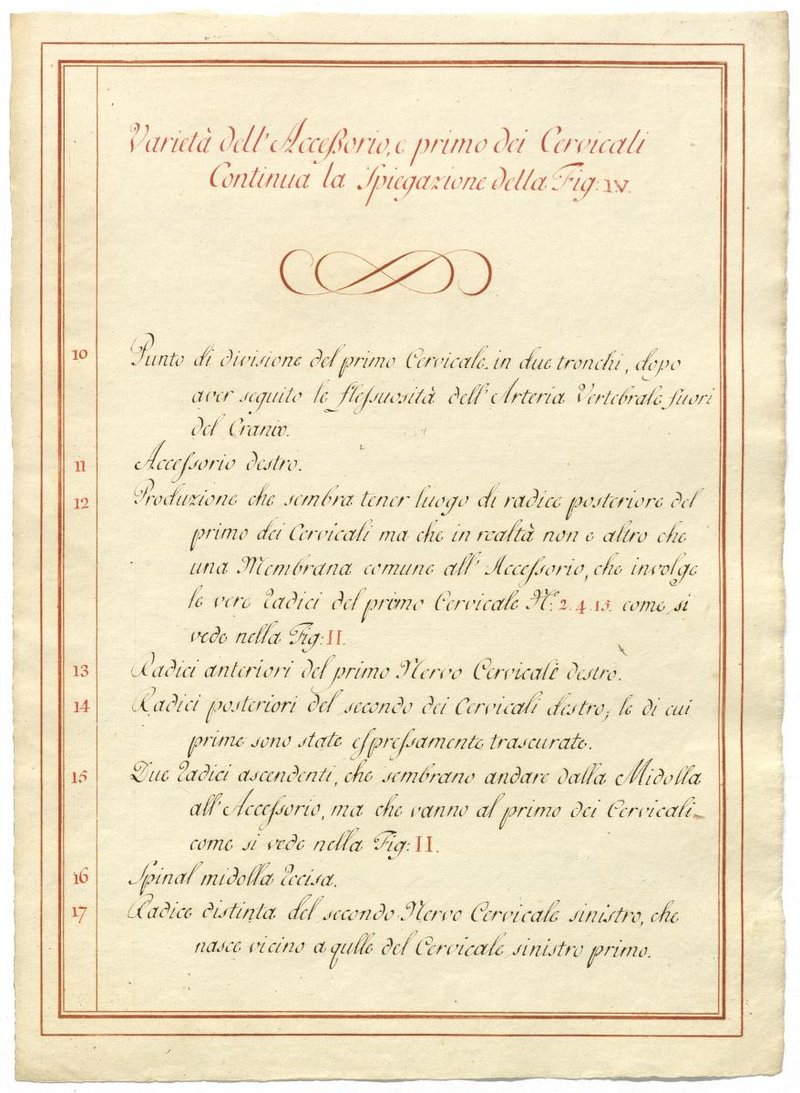 Varietà dell'Acceßorio, e primo dei Cervicali
Continua la Spiegazione della Fig: IV.
10 Punto di divisione del primo Cervicale in due tronchi, dopo
aver seguito le flessuosità dell'Arteria Vertebrale fuori
del Cranio.
11 Accessorio destro.
12 Produzione che sembra tener luogo di radice posteriore del
primo dei Cervicali ma che in realtà non e altro che
una Membrana comune all'Accessorio, che involge
le vere radici del primo Cervicale N.º 2. 4. 15. come si
vede nella Fig: II.
13 Radici anteriori del primo Nervo Cervicale destro.
14 Radici posteriori del secondo dei Cervicali destro; le di cui
prime sono state espressamente trascurate.
15 Due radici ascendenti, che sembrano andare dalla Midolla
all'Accessorio, ma che vanno al primo dei Cervicali
come si vede nella Fig: II.
16 Spinal midolla recisa.
17 Radice distinta del secondo Nervo Cervicale sinistro, che
nasce vicino a qulle del Cervicale sinistro primo.